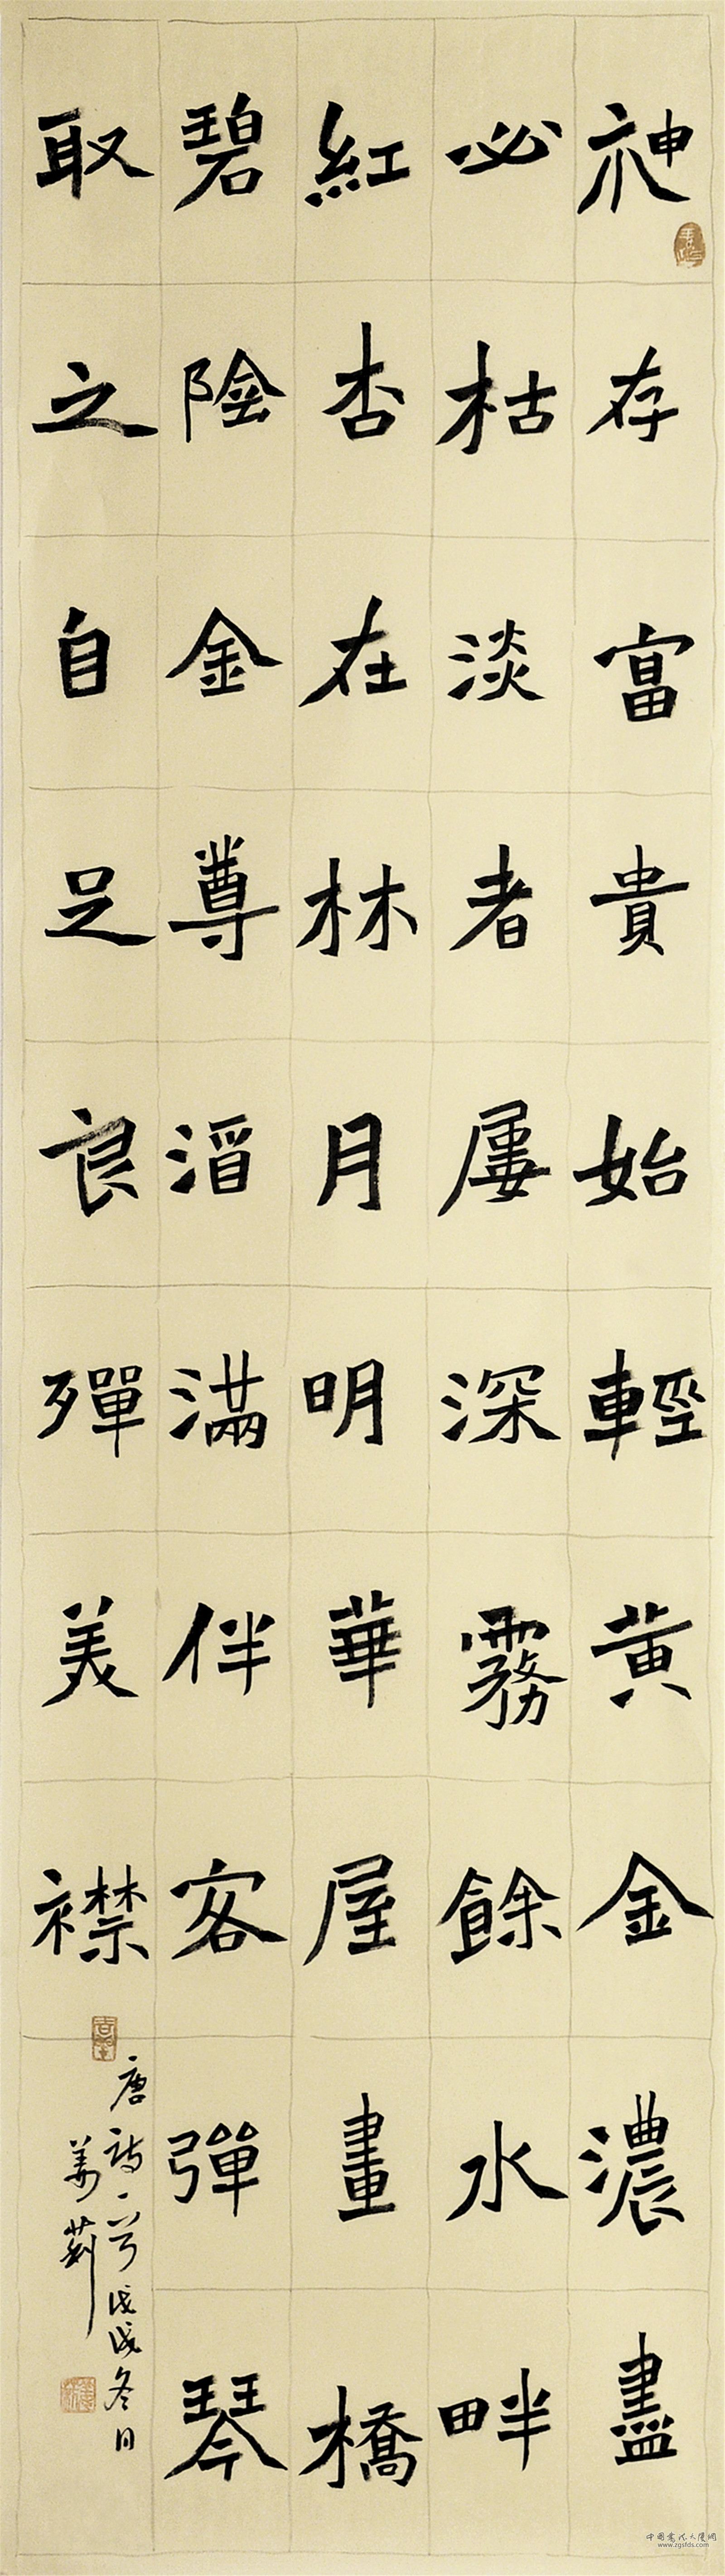 神存富貴始輕黃金濃盡
必枯淡者屢深霧餘水畔
紅杏在林月明華屋畫橋
碧陰金尊酒滿伴客彈琴
取之自足良殫美襟
唐詩一首戊戌冬日
姜
中国书法大厦网
www.zgsfds.com